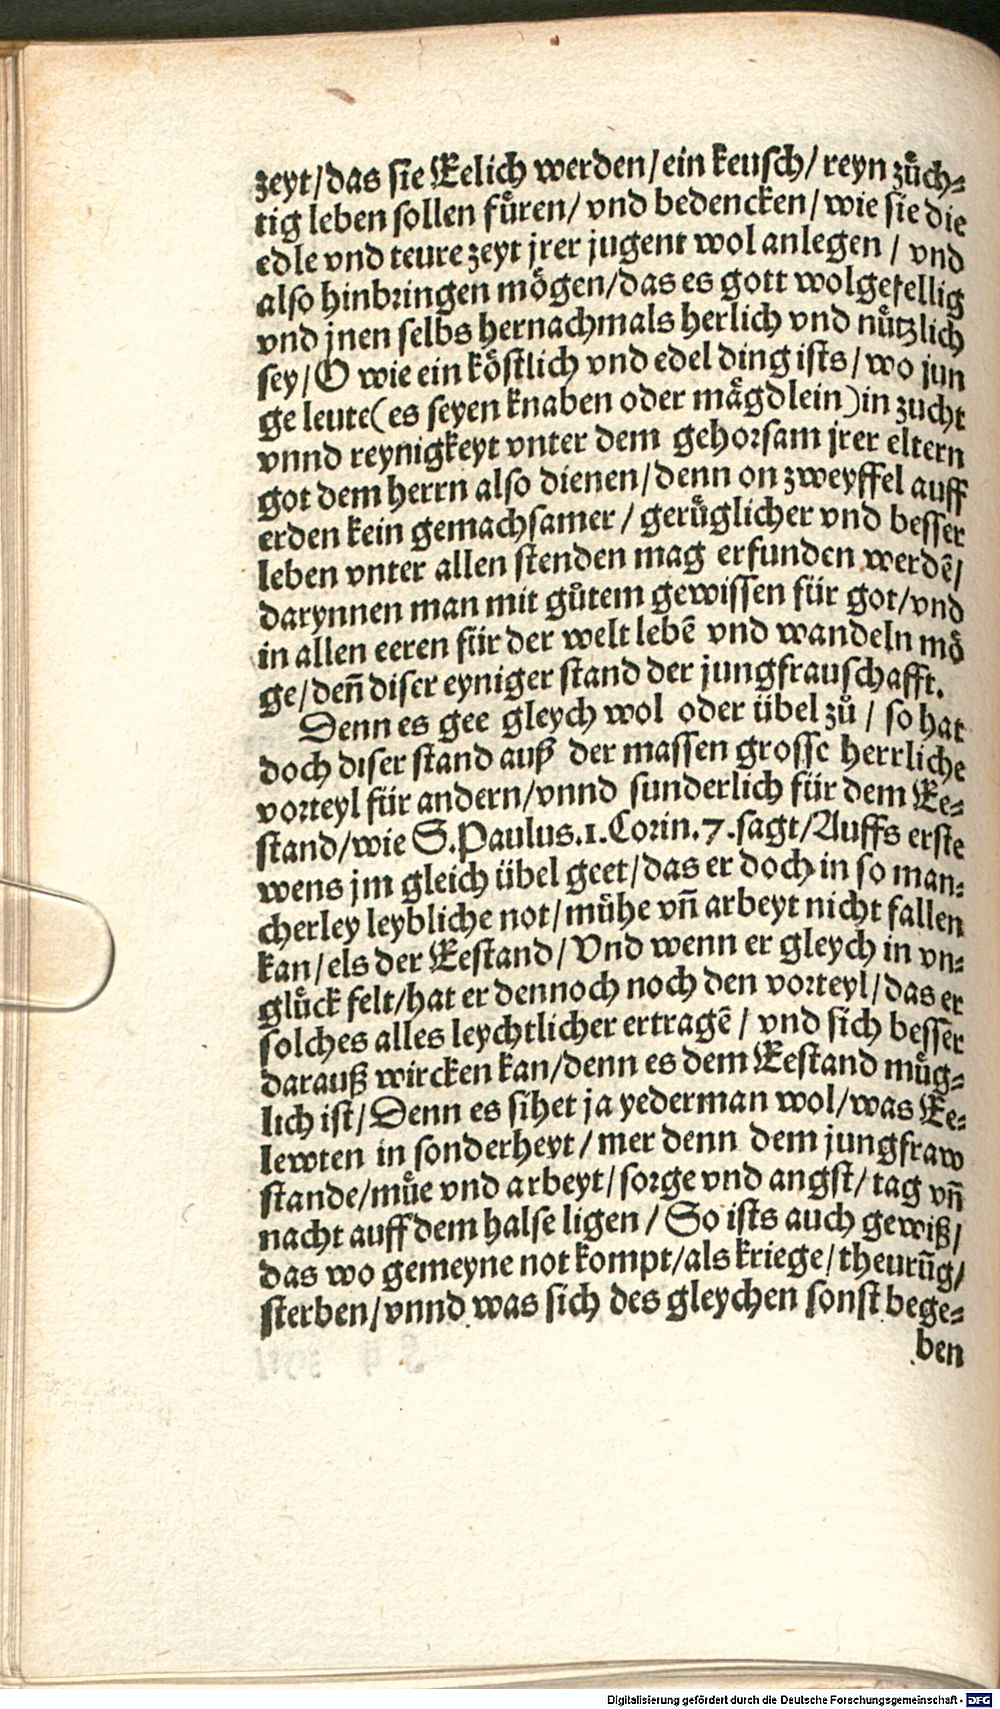 zeyt/das sie Eelich werden/ein keusch/reyn zuͤch⸗
tig leben sollen fuͤren/ vnd bedencken/wie sie die
edle vnd teure zeyt jrer jugent wol anlegen / vnd
also hinbringen moͤgen/das es gott wolgefellig
vnd jnen selbs hernachmals herlich vnd nuͤtzlich
sey/O wie ein koͤstlich vnd edel ding ists/wo jun
ge leute(es seyen knaben oder maͤgdlein)in zucht
vnnd reynigkeyt vnter dem gehorsam jrer eltern
got dem herrn also dienen/denn on zweyffel auff
erden kein gemachsamer/geruͤglicher vnd besser
leben vnter allen stenden mag erfunden werdẽ/
darynnen man mit guͦtem gewissen für got/vnd
in allen eeren für der welt lebẽ vnd wandeln moͤ
ge/deñ diser eyniger stand der jungfrauschafft.
Denn es gee gleych wol oder übel zuͦ / so hat
doch diser stand auß der massen grosse herrliche
vorteyl für andern/vnnd sunderlich für dem Ee⸗
stand/wie S.Paulus.1.Corin.7.sagt/Auffs erste
wens jm gleich übel geet/das er doch in so man⸗
cherley leybliche not/muͤhe vñ arbeyt nicht fallen
kan/els der Eestand/Vnd wenn er gleych in vn⸗
gluͤck felt/hat er dennoch noch den vorteyl/das er
solches alles leychtlicher ertragẽ/ vnd sich besser
darauß wircken kan/denn es dem Eestand muͤg⸗
lich ist/Denn es sihet ja yederman wol/was Ee⸗
lewten in sonderheyt/mer denn dem jungfraw
stande/muͤe vnd arbeyt/sorge vnd angst/tag vñ
nacht auff dem halse ligen/So ists auch gewiß/
das wo gemeyne not kompt/als kriege/theurũg/
sterben/vnnd was sich des gleychen sonst bege⸗
ben
Digitalisierung gefördert durch die Deutsche Forschungsgemeinschaft - DFG